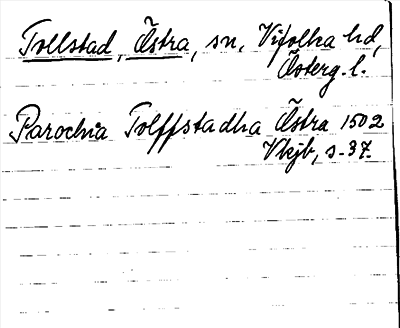 Tollstad, Östra, sn, Vifolka hd,
Österg. l.
Parochia Tolffstadha Östra 1502
Vkjb, s. 37.